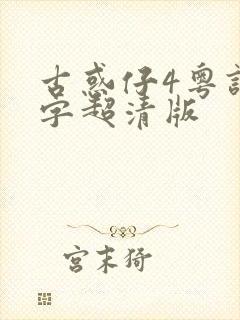 古惑仔4粤
字超清版
宫末猗